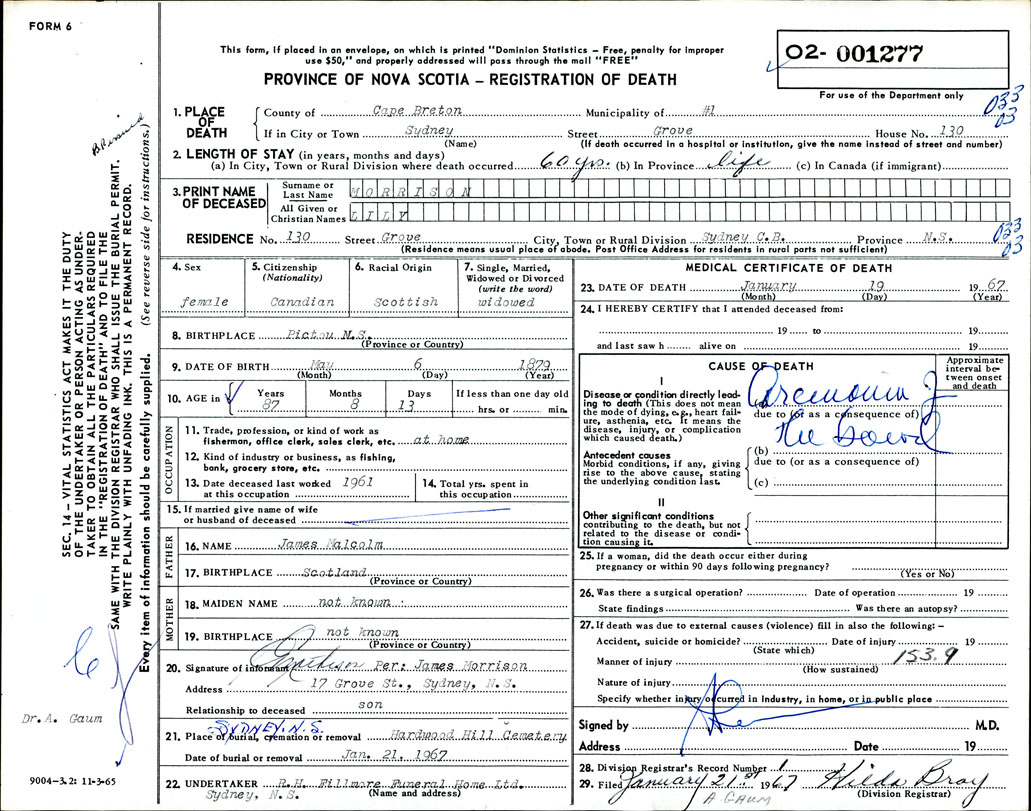 FORM 6
This form, if placed in an envelope, on which is printed "Dominion Statistics – Free, penalty for improper
use $50," and properly addressed will pass through the mail "FREE"
PROVINCE OF NOVA SCOTIA – REGISTRATION OF DEATH
02- 001277
For use of the Department only
033
03
1. PLACE OF DEATH County of Cape Breton Municipality of #1
If in City or Town Sydney Street Grove House No. 130
(Name) (If death occurred in a hospital or institution, give the name instead of street and number)
2. LENGTH OF STAY (in years, months and days)
(a) In City, Town or Rural Division where death occurred 60 yrs. (b) In Province life (c) In Canada (if immigrant)
3. PRINT NAME OF DECEASED Surname or Last Name MORRISON
All Given or Christian Names LILY
RESIDENCE No. 130 Street Grove City, Town or Rural Division Sydney C.B. Province N.S.
(Residence means usual place of abode. Post Office Address for residents in rural parts not sufficient)
033
03
4. Sex female
5. Citizenship (Nationality) Canadian
6. Racial Origin Scottish
7. Single, Married, Widowed or Divorced (write the word) widowed
8. BIRTHPLACE Pictou N.S.
(Province or Country)
9. DATE OF BIRTH May 6 1879
(Month) (Day) (Year)
10. AGE in Years 87 Months 8 Days 13 If less than one day old hrs. or min.
OCCUPATION
11. Trade, profession, or kind of work as
fisherman, office clerk, sales clerk, etc. at home
12. Kind of industry or business, as fishing,
bank, grocery store, etc.
13. Date deceased last worked at this occupation 1961
14. Total yrs. spent in this occupation
15. If married give name of wife
or husband of deceased
FATHER
16. NAME James Malcolm
17. BIRTHPLACE Scotland
(Province or Country)
MOTHER
18. MAIDEN NAME not known
19. BIRTHPLACE not known
(Province or Country)
20. Signature of informant Per: James Morrison
Address 17 Grove St., Sydney, N.S.
Relationship to deceased son
SYDNEY. N.S.
21. Place of burial, cremation or removal Hardwood Hill Cemetery
Date of burial or removal Jan. 21, 1967
22. UNDERTAKER R.H. Fillmore Funeral Home Ltd.
Sydney, N.S. (Name and address)
MEDICAL CERTIFICATE OF DEATH
23. DATE OF DEATH January 19 1967
(Month) (Day) (Year)
24. I HEREBY CERTIFY that I attended deceased from:
19 to 19
and last saw h alive on 19
CAUSE OF DEATH
Approximate interval between onset and death
I
Disease or condition directly leading to death (This does not mean the mode of dying, e.g., heart failure, asthenia, etc. It means the disease, injury, or complication which caused death.)
(a)
due to (or as a consequence of)
Antecedent causes
Morbid conditions, if any, giving rise to the above cause, stating the underlying condition last.
(b)
due to (or as a consequence of)
(c)
II
Other significant conditions
contributing to the death, but not related to the disease or condition causing it.
25. If a woman, did the death occur either during
pregnancy or within 90 days following pregnancy?
(Yes or No)
26. Was there a surgical operation? Date of operation 19
State findings Was there an autopsy?
27. If death was due to external causes (violence) fill in also the following: –
Accident, suicide or homicide? Date of injury 19
(State which)
Manner of injury 153.9
(How sustained)
Nature of injury
Specify whether injury occurred in Industry, in home, or in public place
Signed by M.D.
Address Date 19
28. Division Registrar's Record Number 1
29. Filed January 21st 1967 Hilda Bray
(Division Registrar)
A GAUM
SEC. 14 – VITAL STATISTICS ACT MAKES IT THE DUTY
OF THE UNDERTAKER OR PERSON ACTING AS UNDER-
TAKER TO OBTAIN ALL THE PARTICULARS REQUIRED
IN THE "REGISTRATION OF DEATH" AND TO FILE THE
SAME WITH THE DIVISION REGISTRAR WHO SHALL ISSUE THE BURIAL PERMIT.
WRITE PLAINLY WITH UNFADING INK. THIS IS A PERMANENT RECORD.
Every item of information should be carefully supplied. (See reverse side for instructions.)
Dr. A. Gaum
9004-3.2: 11-3-65